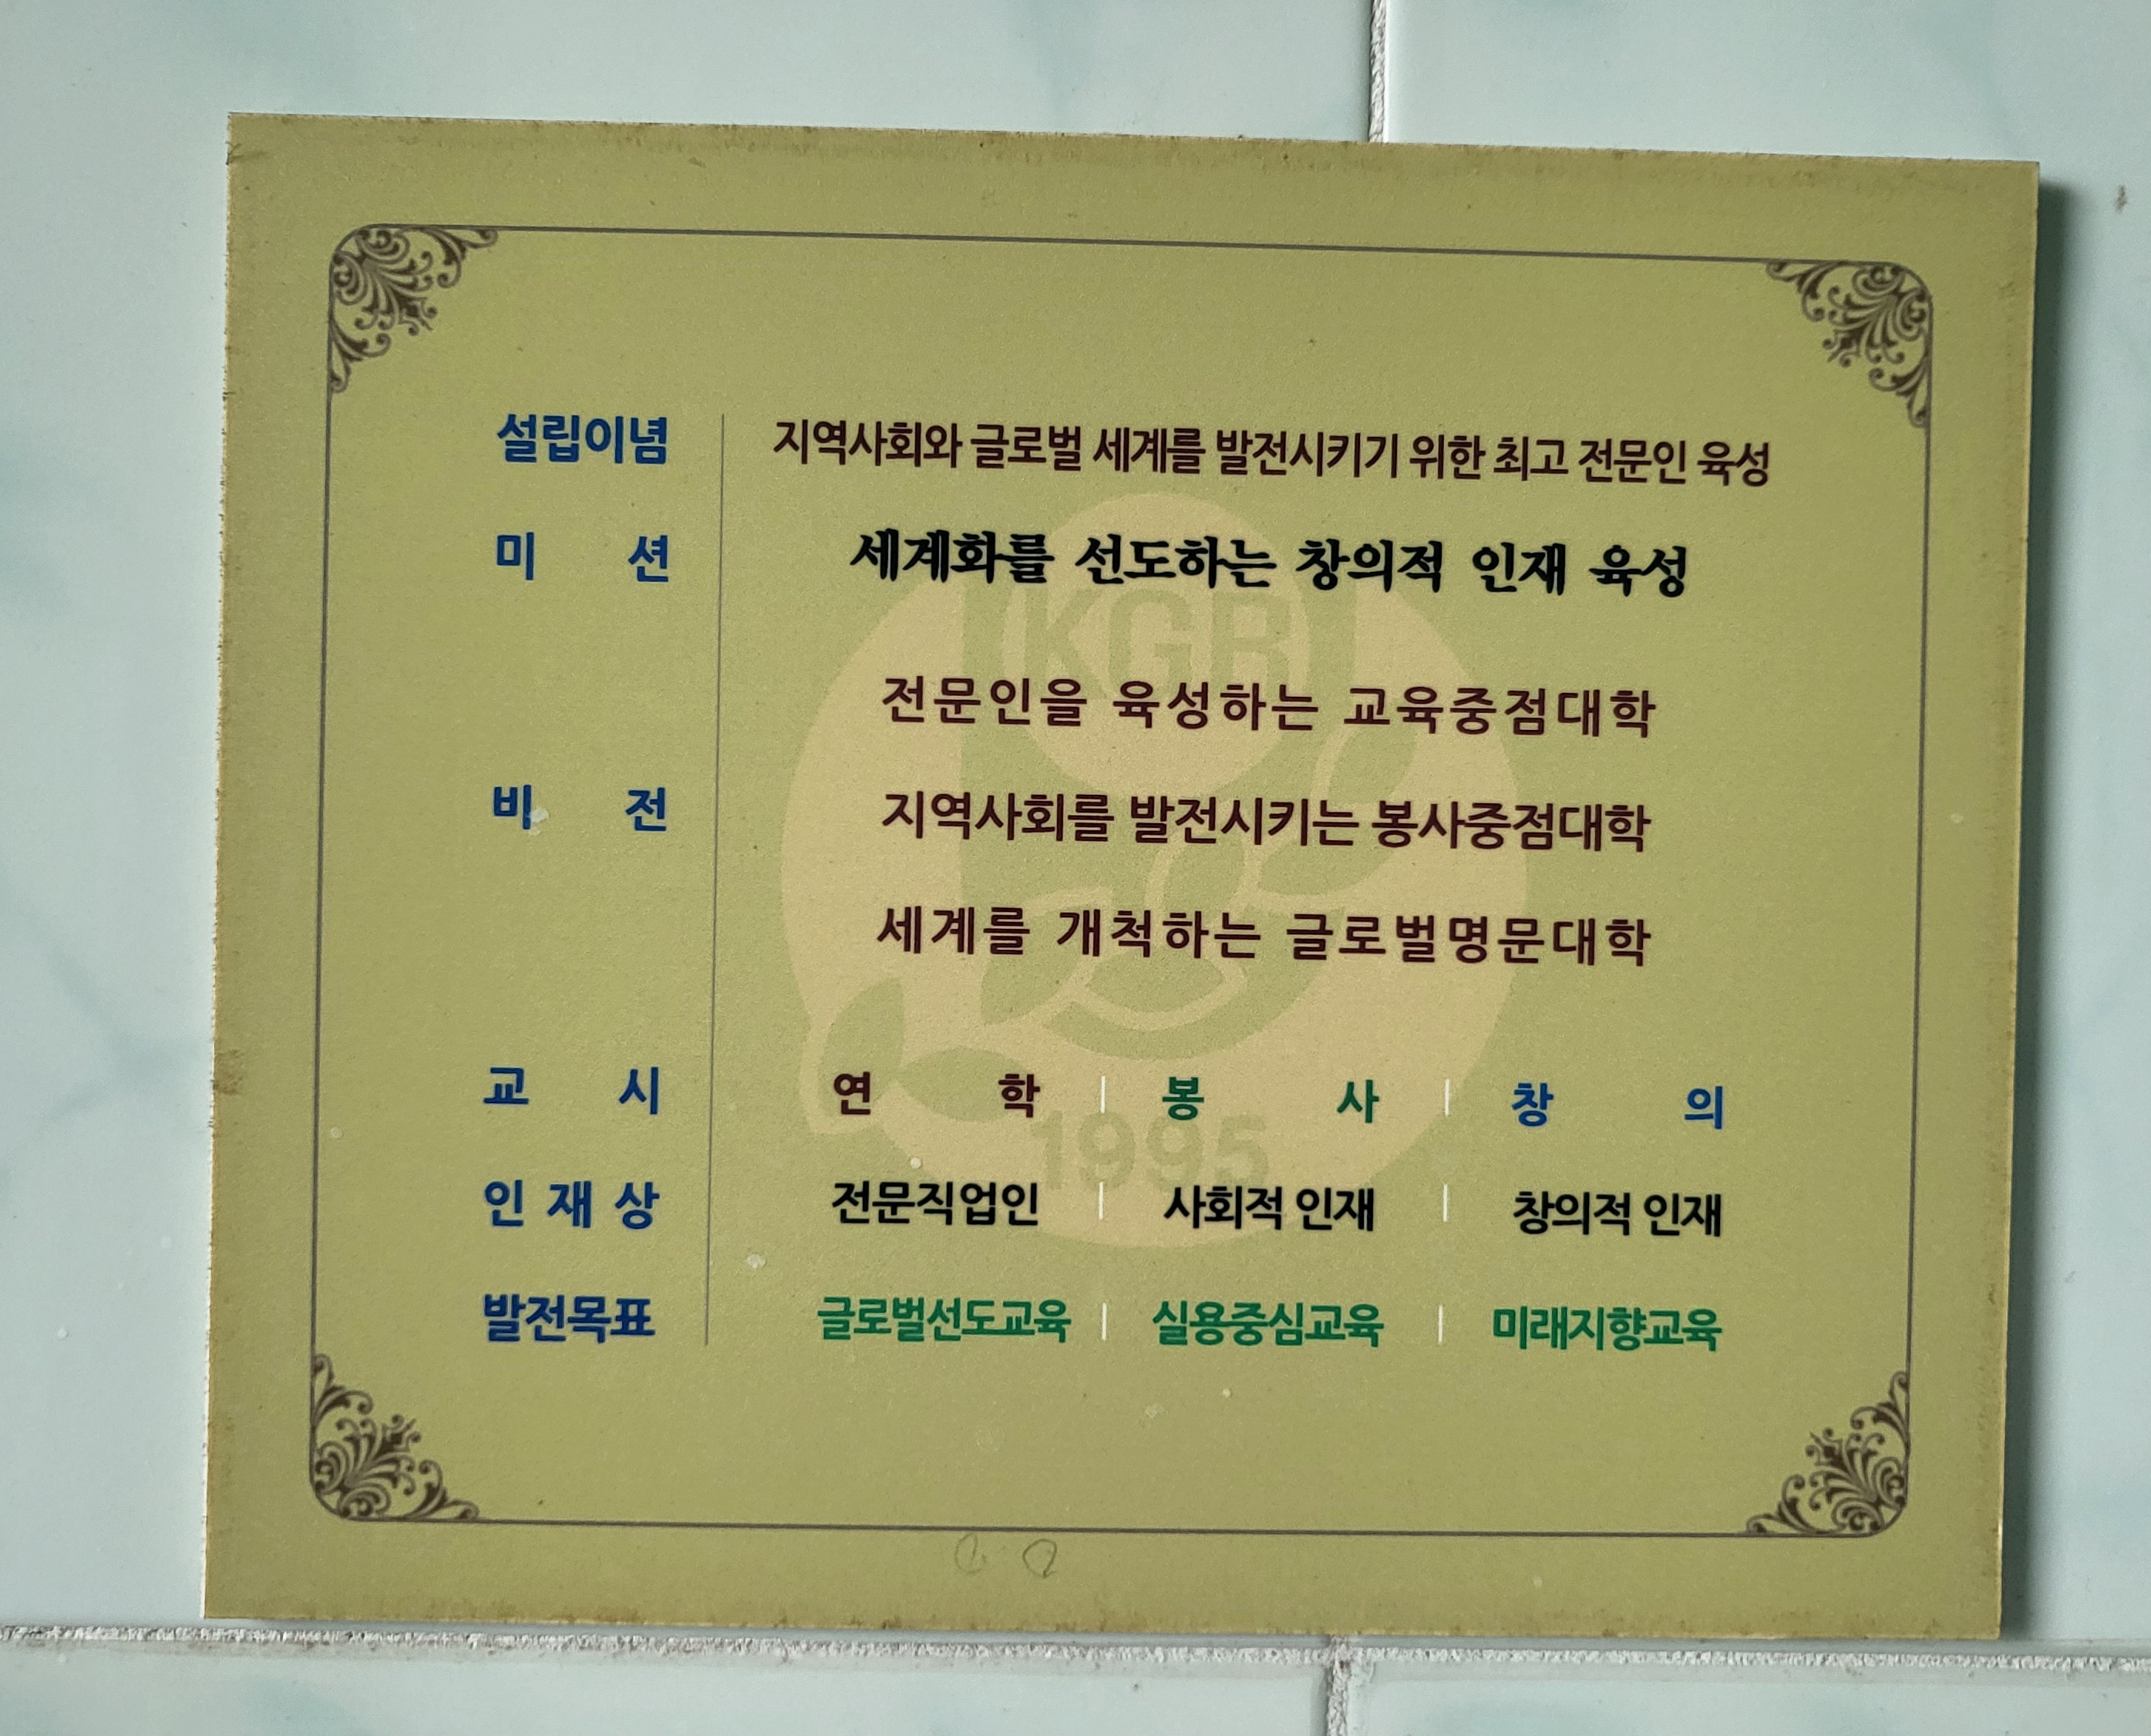 설립이념 지역사회와 글로벌 세계를 발전시키기 위한 최고 전문인 육성
미 션 세계화를 선도하는 창의적 인재 육성
KGB
전문인을 육성하는 교육중점대학
비 전 지역사회를 발전시키는 봉사중점대학
세계를 개척하는 글로벌명문대학
교 시 연 학 | 봉 사 | 창 의
1995
인 재 상 전문직업인 | 사회적 인재 | 창의적 인재
발전목표 글로벌선도교육 | 실용중심교육 | 미래지향교육